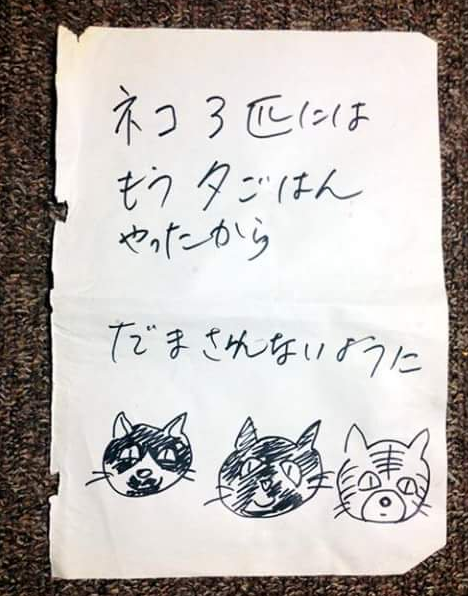 ネコ3匹には
もう夕ごはん
やったから
だまさんないように